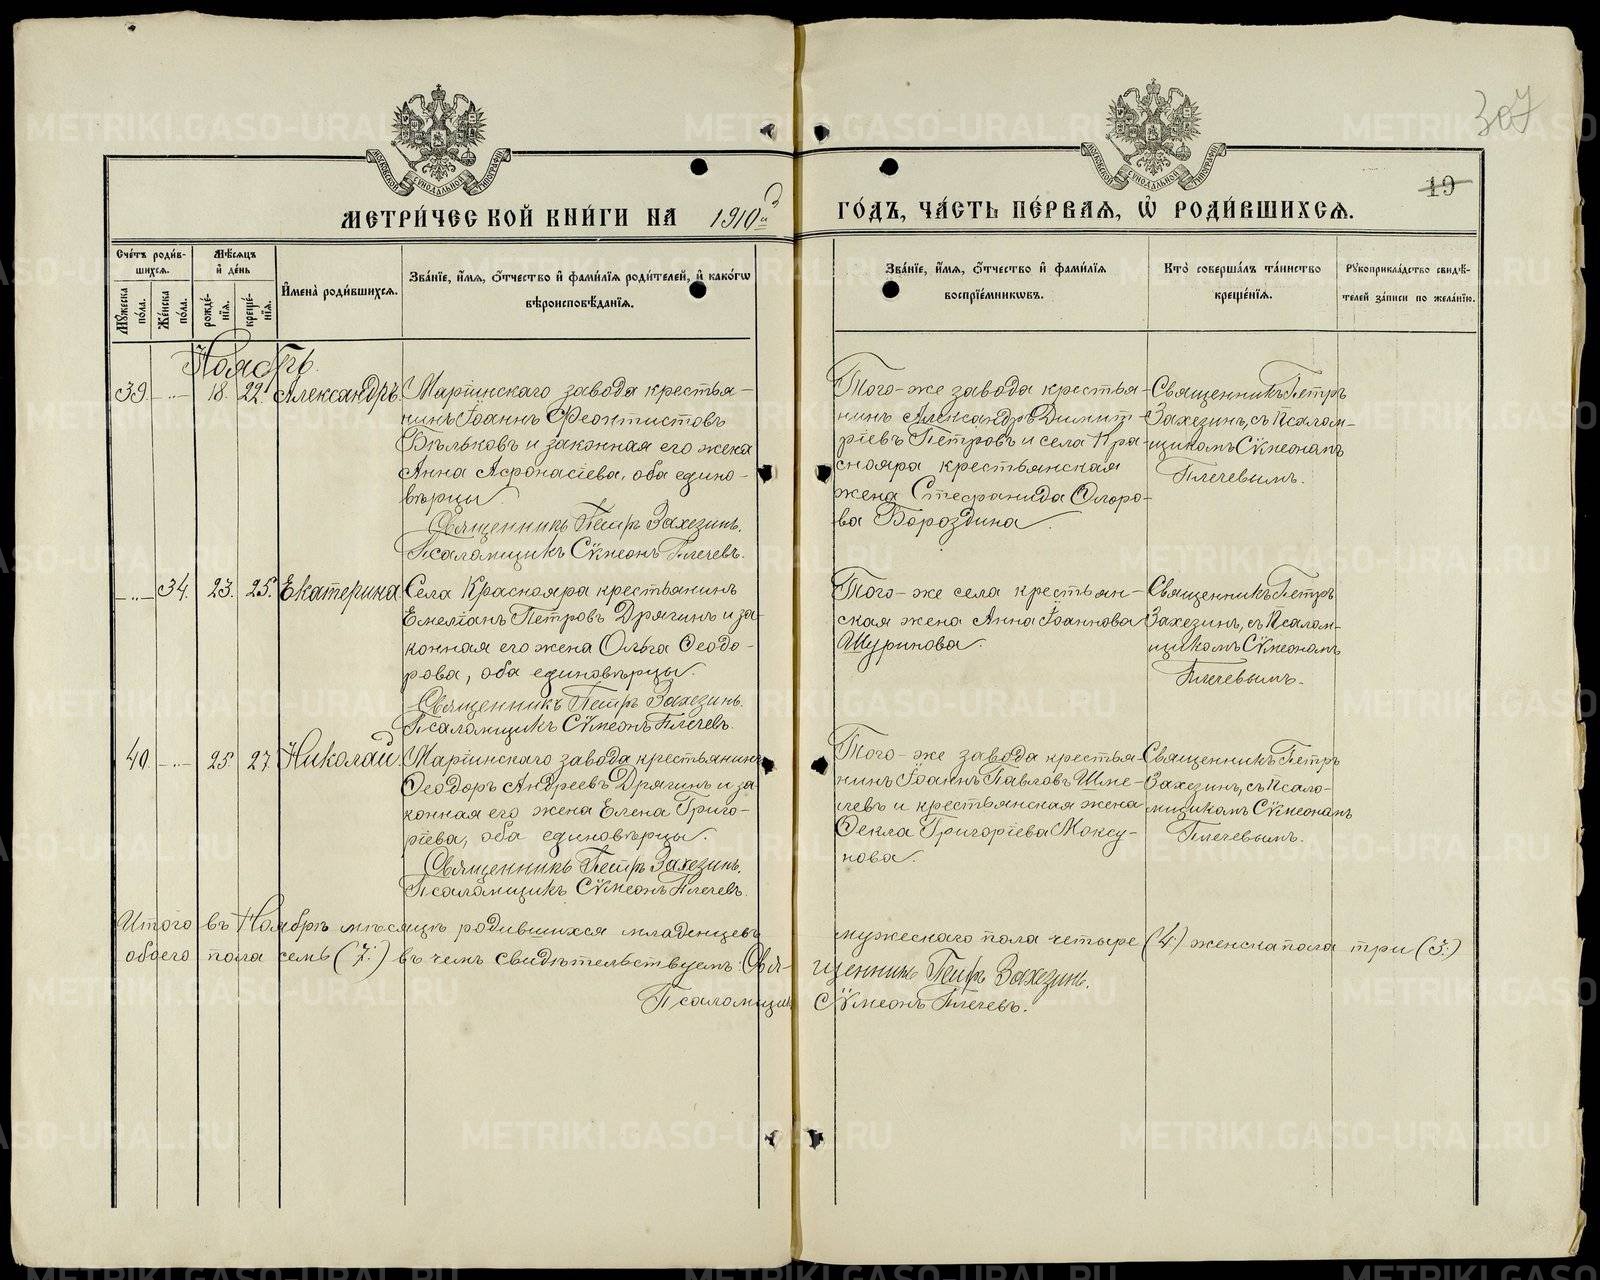 307
19
МОСКОВСКОЙ СѴНОДАЛЬНОЙ ТИПОГРАФІИ
МОСКОВСКОЙ СѴНОДАЛЬНОЙ ТИПОГРАФІИ
МЕТРИ́ЧЕСКОЙ КНИ́ГИ НА 1910й ГО́ДЪ, ЧА́СТЬ ПЕ́РВАѦ, Ѡ҆ РОДИ́ВШИХСѦ.
Сче́тъ роди́в-
шихсѧ.
Мꙋ́жеска по́ла.
Же́нска по́ла.
Мѣ́сѧцъ
и҆ де́нь
рожде́-
нїѧ.
креще́-
нїѧ.
И҆мена̀ роди́вшихсѧ.
Зва́нїе, и҆́мѧ, ѻ҆́тчество и҆ фами́лїѧ роди́телей, и҆ како́гѡ
вѣроисповѣ́данїѧ.
Зва́нїе, и҆́мѧ, ѻ҆́тчество и҆ фами́лїѧ
воспрїе́мникѡвъ.
Кто̀ соверша́лъ та́инство
креще́нїѧ.
Рꙋкоприкла́дство свидѣ́-
телей за́писи по жела́нїю.
Ноябрь.
39. — „ — 18. 22. Александръ
Маріинскаго завода крестья-
нинъ Іоаннъ Феоктистовъ
Бѣльковъ и законная его жена
Анна Афонасіева, оба едино-
вѣрцы
Священникъ Петръ Захезинъ.
Псаломщикъ Сѵмеонъ Плечевъ.
Того-же завода крестья-
нинъ Александръ Димит-
ріевъ Петровъ и села Кра-
снояра крестьянская
жена Стефанида Ѳедоро-
ва Бороздина
Священникъ Петръ
Захезинъ, съ Псалом-
щикомъ Сѵмеономъ
Плечевымъ.
— „ — 34. 23. 25. Екатерина
Села Краснояра крестьянинъ
Емеліанъ Петровъ Дрягинъ и за-
конная его жена Ольга Ѳеодо-
рова, оба единовѣрцы.
Священникъ Петръ Захезинъ.
Псаломщикъ Сѵмеонъ Плечевъ.
Того-же села крестьян-
ская жена Анна Іоаннова
Шуринова.
Священникъ Петръ
Захезинъ, съ Псалом-
щикомъ Сѵмеономъ
Плечевымъ.
40. — „ — 25. 27. Николай.
Маріинскаго завода крестьянинъ
Ѳеодоръ Андреевъ Дрягинъ и за-
конная его жена Елена Григо-
ріева, оба единовѣрцы.
Священникъ Петръ Захезинъ.
Псаломщикъ Сѵмеонъ Плечевъ.
Того-же завода крестья-
нинъ Іоаннъ Павловъ Шме-
левъ и крестьянская жена
Ѳекла Григоріева Моксу-
нова.
Священникъ Петръ
Захезинъ, съ Псало-
мщикомъ Сѵмеономъ
Плечевымъ.
Итого въ Ноябрѣ мѣсяцѣ родившихся младенцевъ мужескаго пола четыре (4.) женска пола три (3.)
обоего пола семь (7.) въ чемъ свидѣтельствуемъ: Свя-щенникъ Петръ Захезинъ.
Псаломщикъ Сѵмеонъ Плечевъ.
METRIKI.GASO-URAL.RU